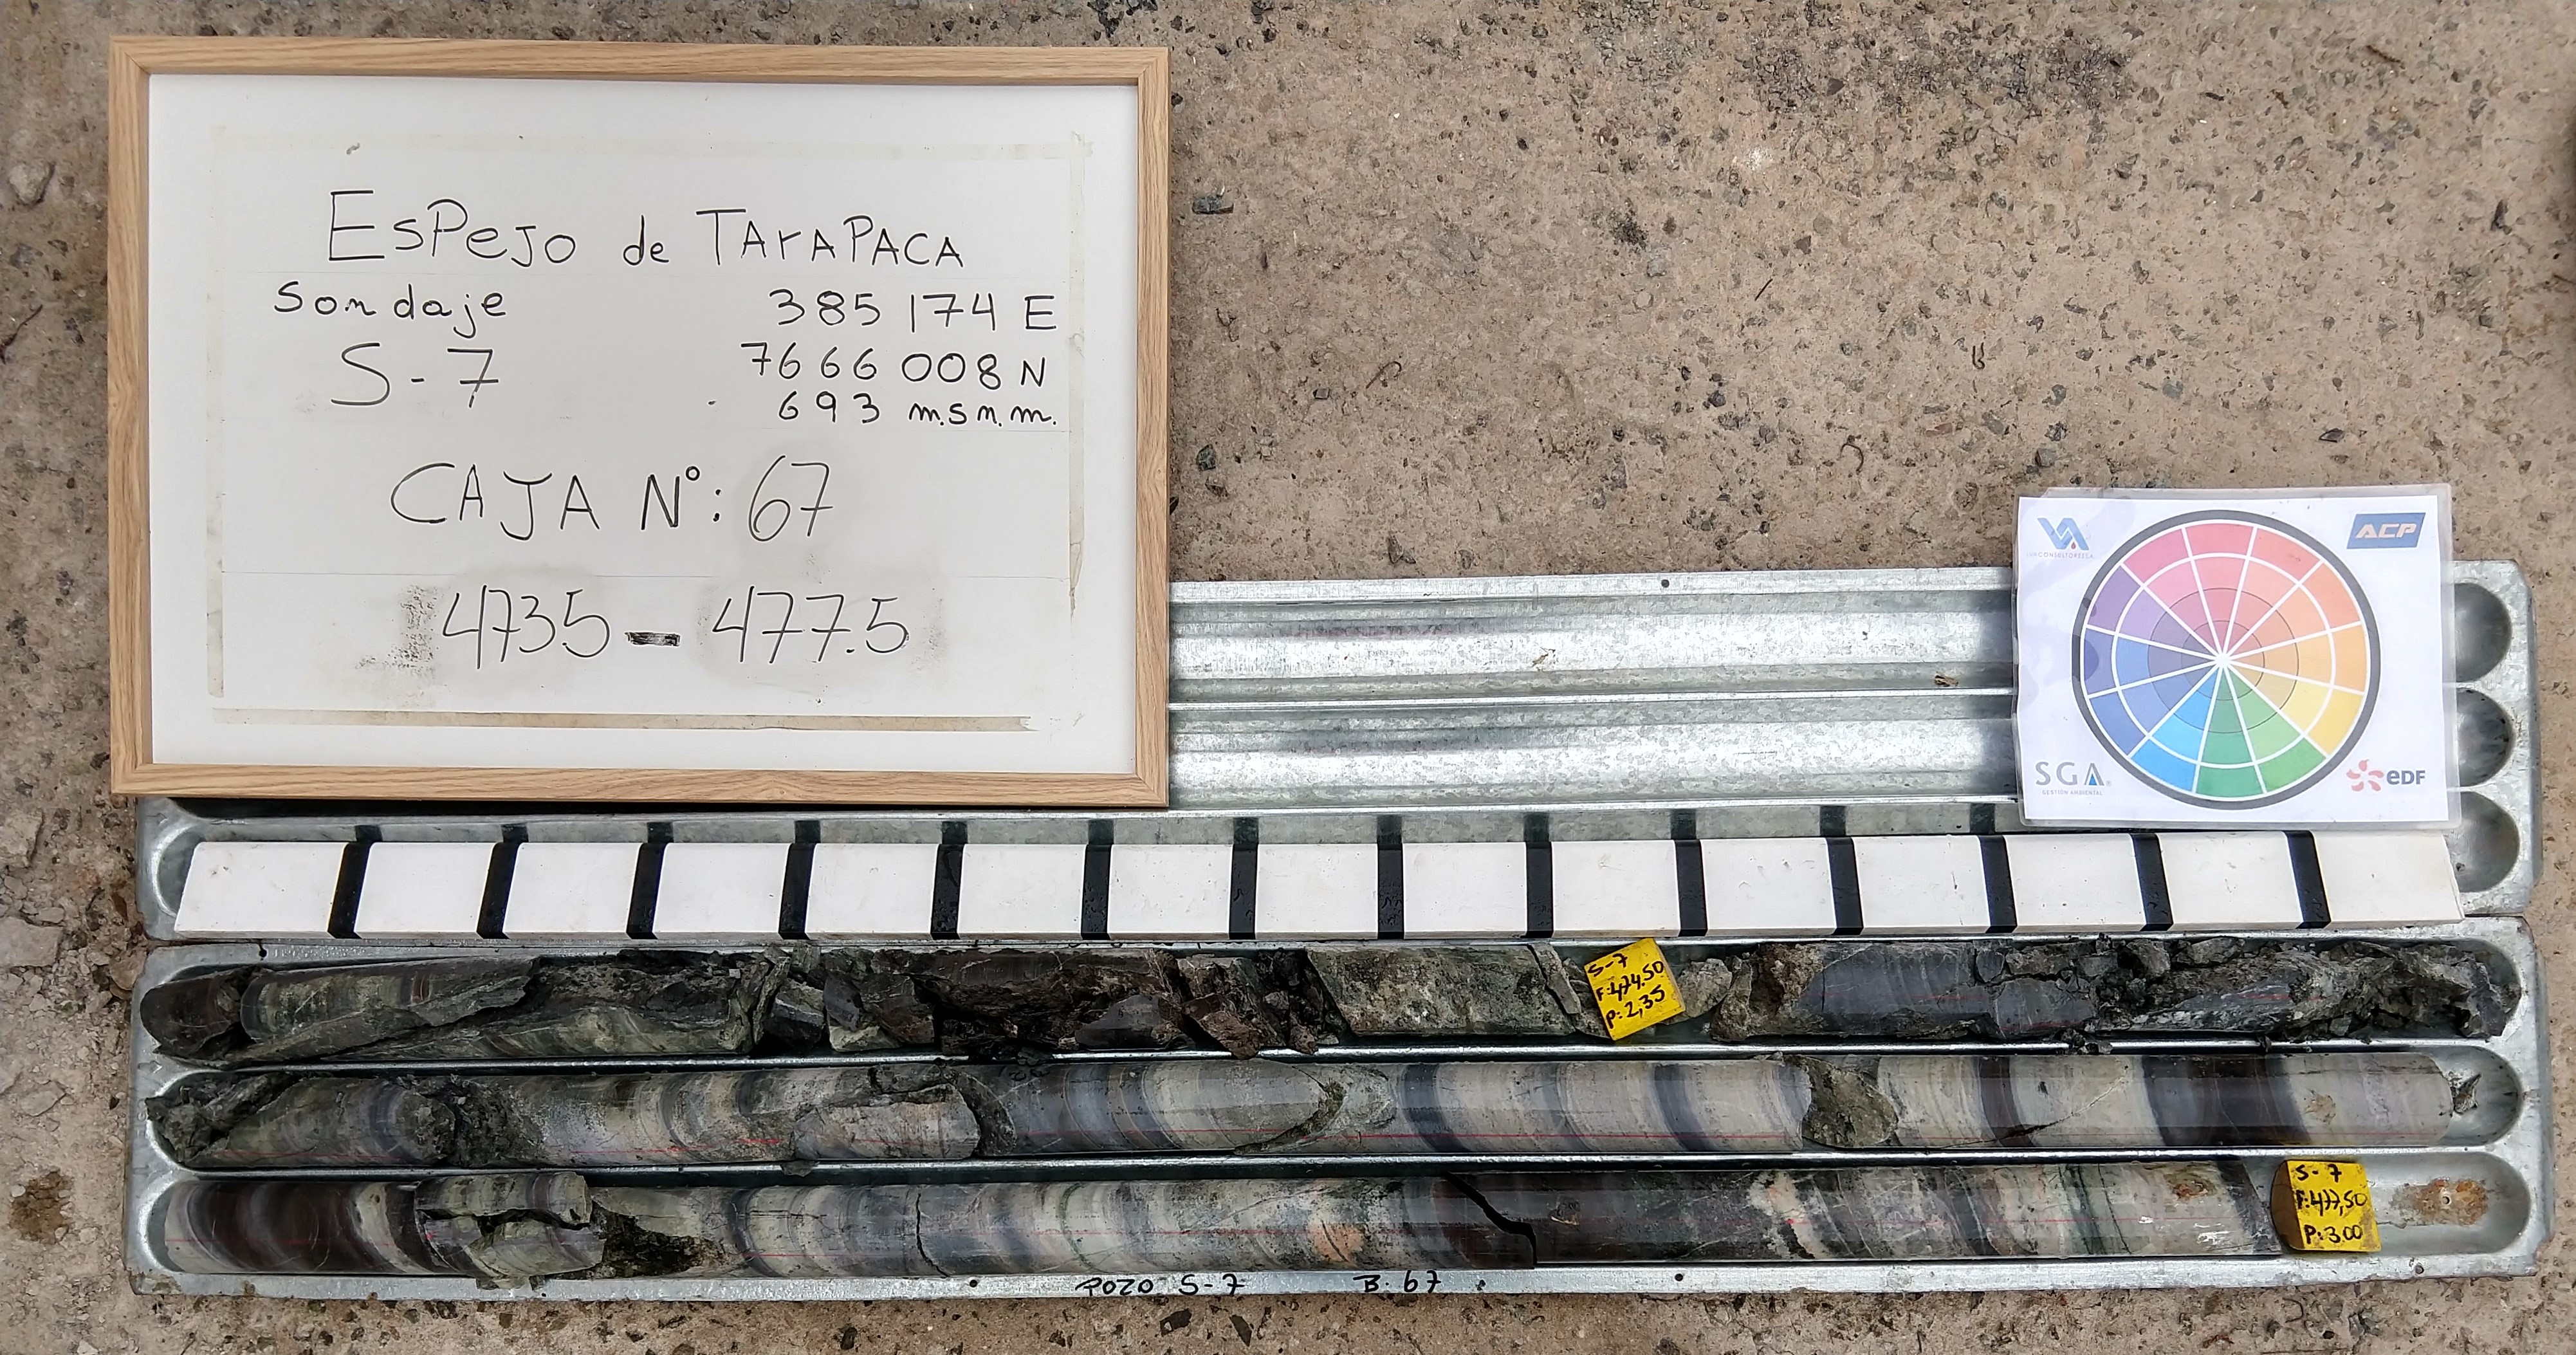 ESPEJO de TARAPACA
Sondaje 385 174 E
S-7 7666 008 N
693 m.s.n.m.
CAJA N°: 67
4735 - 477.5
ACP
SGA
GESTIÓN AMBIENTAL
eDF
S-7
F:474.50
P:2,35
S-7
F:477,50
P:3.00
POZO S-7 B:67